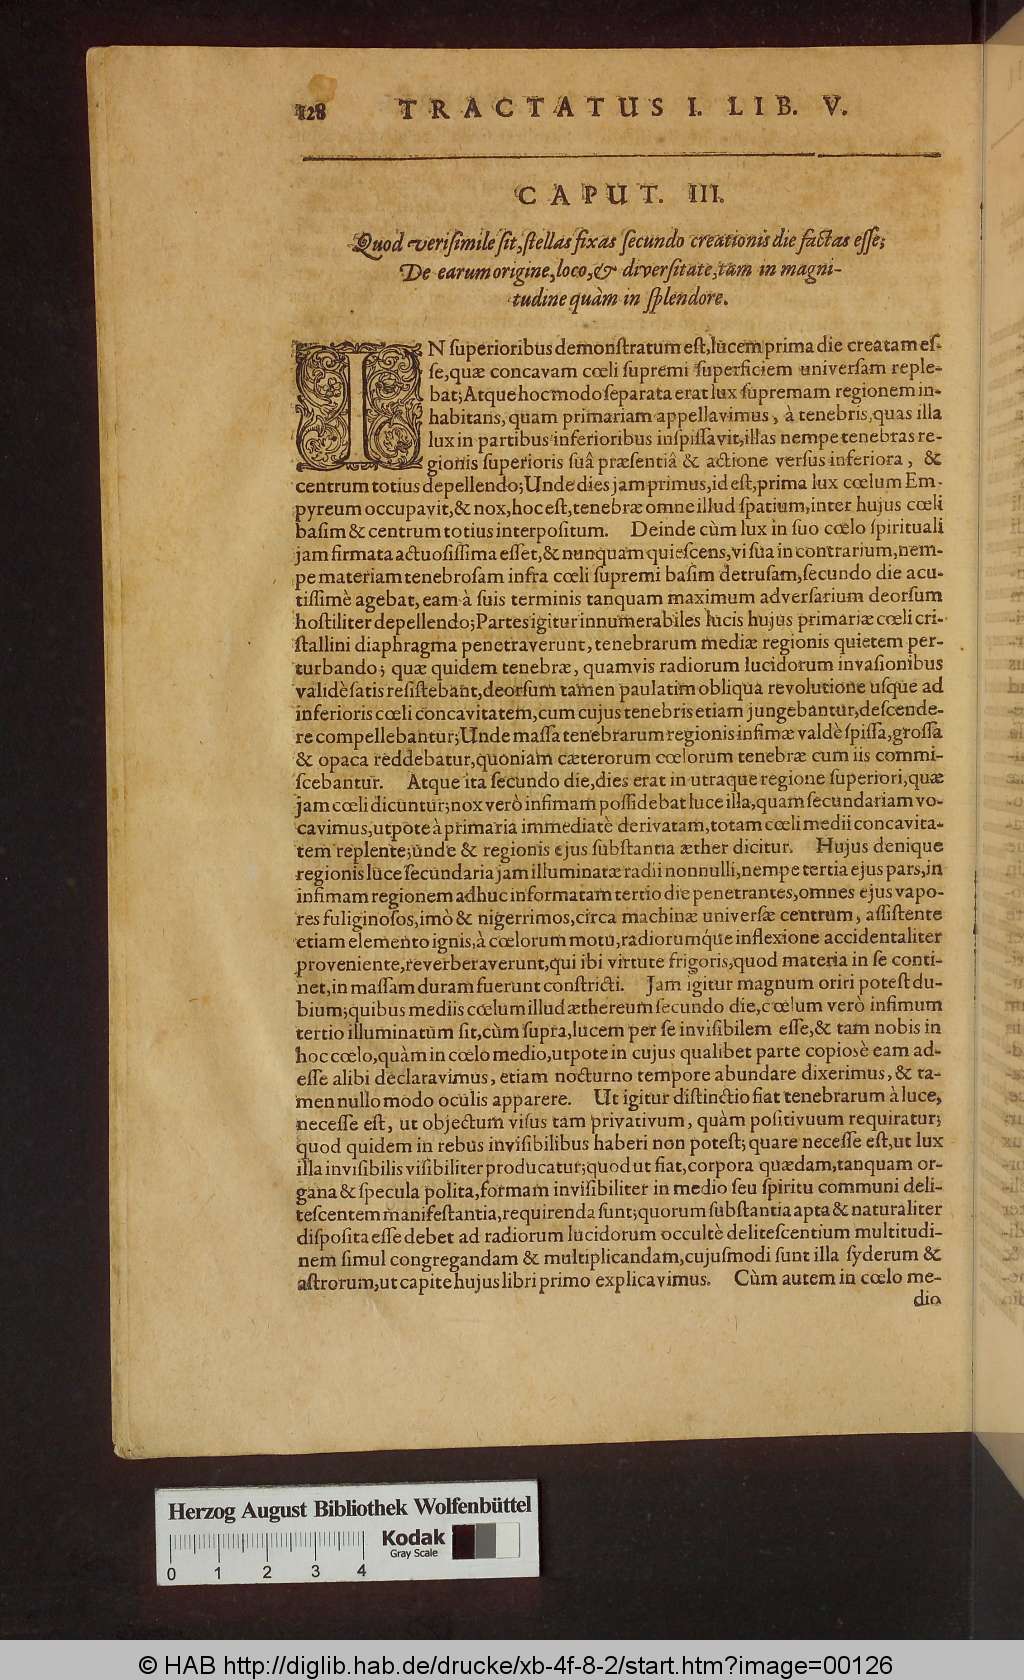 128 TRACTATUS I. LIB. V.
CAPUT. III.
Quod verisimile sit, stellas fixas secundo creationis die factas esse;
De earum origine, loco, & diversitate, tam in magni-
tudine quàm in splendore.
IN superioribus demonstratum est, lucem prima die creatam es-
se, quæ concavam cœli supremi superficiem universam reple-
bat; Atque hoc modo separata erat lux supremam regionem in-
habitans, quam primariam appellavimus, à tenebris, quas illa
lux in partibus inferioribus inspissavit, illas nempe tenebras re-
gionis superioris suâ præsentiâ & actione versus inferiora, &
centrum totius depellendo; Unde dies jam primus, id est, prima lux cœlum Em-
pyreum occupavit, & nox, hoc est, tenebræ omne illud spatium, inter hujus cœli
basim & centrum totius interpositum. Deinde cùm lux in suo cœlo spirituali
jam firmata actuosissima esset, & nunquam quiescens, vi sua in contrarium, nem-
pe materiam tenebrosam infra cœli supremi basim detrusam, secundo die acu-
tissimè agebat, eam à suis terminis tanquam maximum adversarium deorsum
hostiliter depellendo; Partes igitur innumerabiles lucis hujus primariæ cœli cri-
stallini diaphragma penetraverunt, tenebrarum mediæ regionis quietem per-
turbando; quæ quidem tenebræ, quamvis radiorum lucidorum invasionibus
validè satis resistebant, deorsum tamen paulatim obliqua revolutione usque ad
inferioris cœli concavitatem, cum cujus tenebris etiam jungebantur, descende-
re compellebantur; Unde massa tenebrarum regionis infimæ valdè spissa, grossa
& opaca reddebatur, quoniam cæterorum cœlorum tenebræ cum iis commi-
scebantur. Atque ita secundo die, dies erat in utraque regione superiori, quæ
jam cœli dicuntur; nox verò infimam possidebat luce illa, quam secundariam vo-
cavimus, utpote à primaria immediatè derivatam, totam cœli medii concavita-
tem replente; unde & regionis ejus substantia æther dicitur. Hujus denique
regionis luce secundaria jam illuminatæ radii nonnulli, nempe tertia ejus pars, in
infimam regionem adhuc informatam tertio die penetrantes, omnes ejus vapo-
res fuliginosos, imò & nigerrimos, circa machinæ universæ centrum, assistente
etiam elemento ignis, à cœlorum motu, radiorumq́ue inflexione accidentaliter
proveniente, reverberaverunt, qui ibi virtute frigoris, quod materia in se conti-
net, in massam duram fuerunt constricti. Jam igitur magnum oriri potest du-
bium; quibus mediis cœlum illud æthereum secundo die, cœlum verò infimum
tertio illuminatum sit, cùm supra, lucem per se invisibilem esse, & tam nobis in
hoc cœlo, quàm in cœlo medio, utpote in cujus qualibet parte copiosè eam ad-
esse alibi declaravimus, etiam nocturno tempore abundare dixerimus, & ta-
men nullo modo oculis apparere. Ut igitur distinctio fiat tenebrarum à luce,
necesse est, ut objectum visus tam privativum, quàm positivuum requiratur;
quod quidem in rebus invisibilibus haberi non potest; quare necesse est, ut lux
illa invisibilis visibiliter producatur; quod ut fiat, corpora quædam, tanquam or-
gana & specula polita, formam invisibiliter in medio seu spiritu communi deli-
tescentem manifestantia, requirenda sunt; quorum substantia apta & naturaliter
disposita esse debet ad radiorum lucidorum occultè delitescentium multitudi-
nem simul congregandam & multiplicandam, cujusmodi sunt illa syderum &
astrorum, ut capite hujus libri primo explicavimus. Cùm autem in cœlo me-
dio
Herzog August Bibliothek Wolfenbüttel
Kodak
Gray Scale
0 1 2 3 4
© HAB http://diglib.hab.de/drucke/xb-4f-8-2/start.htm?image=00126